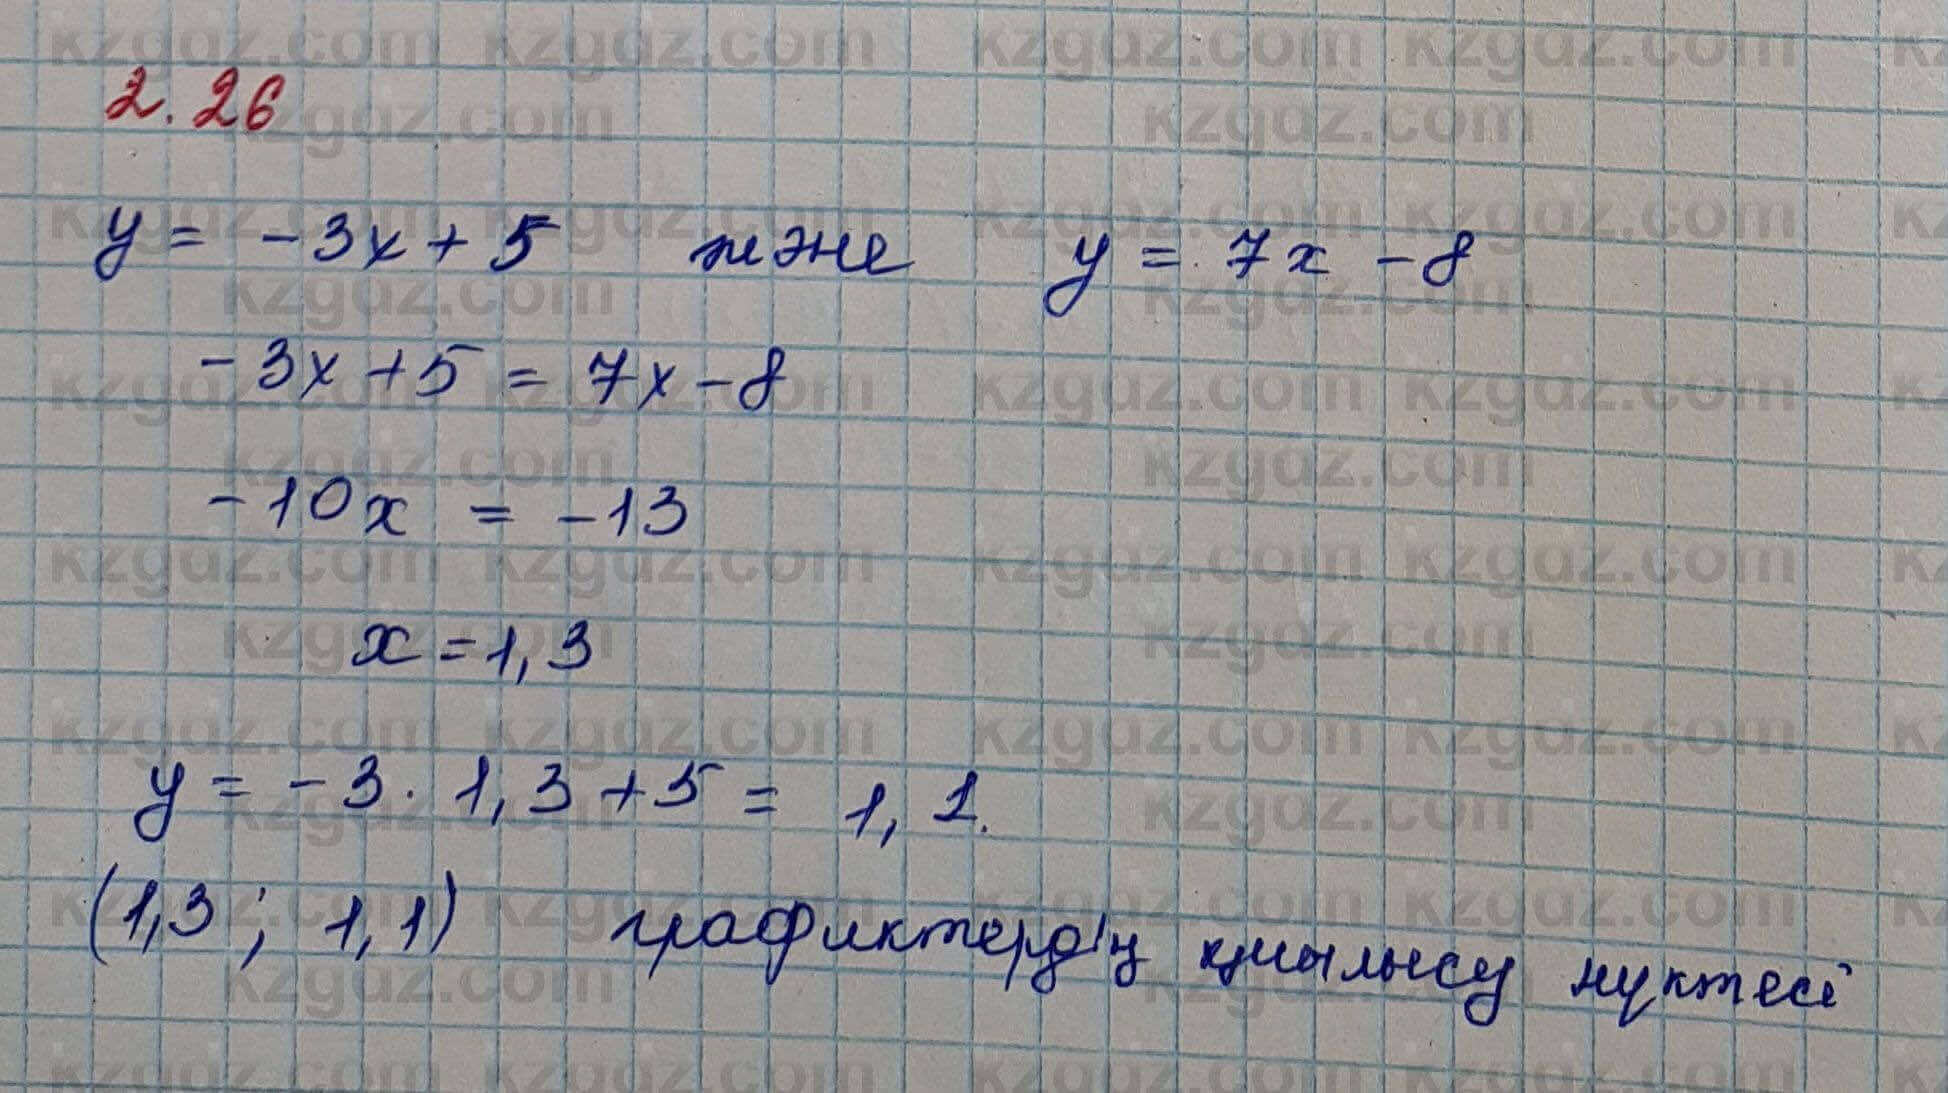 2.26
y = -3x + 5 және y = 7x - 8
-3x + 5 = 7x - 8
-10x = -13
x = 1,3
y = -3 · 1,3 + 5 = 1,1.
(1,3 ; 1,1) графиктердің қиылысу нүктесі